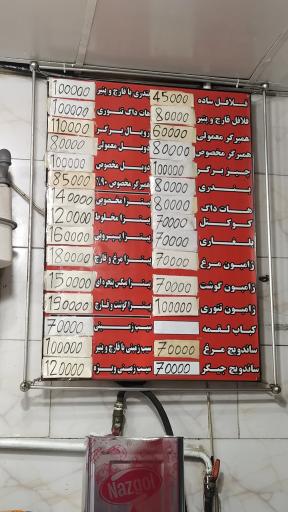 فلافل ساده 45000
فلافل قارچ و پنیر 80000
همبرگر معمولی 60000
همبرگر مخصوص 80000
چیز برگر 100000
بندری 80000
هات داگ 80000
کوکتل 70000
مغز 70000
ژامبون مرغ 70000
ژامبون گوشت 70000
ژامبون تنوری 100000
کباب لقمه
ساندویچ مرغ 70000
ساندویچ جیگر 70000
بندری با قارچ و پنیر 100000
هات داگ تنوری 100000
رویال برگر 110000
دوبل معمولی 80000
دوبل مخصوص 100000
همبرگر مخصوص ۹۰٪ 85000
پیتزا مخصوص 140000
پیتزا مخلوط 120000
پیتزا پپرونی 160000
پیتزا مرغ و قارچ 180000
پیتزا میکس پنجره‌ای 150000
پیتزا گوشت و قارچ 190000
سیب زمینی 70000
سیب زمینی با قارچ و پنیر 100000
سیب زمینی ویژه 120000
Nazgol